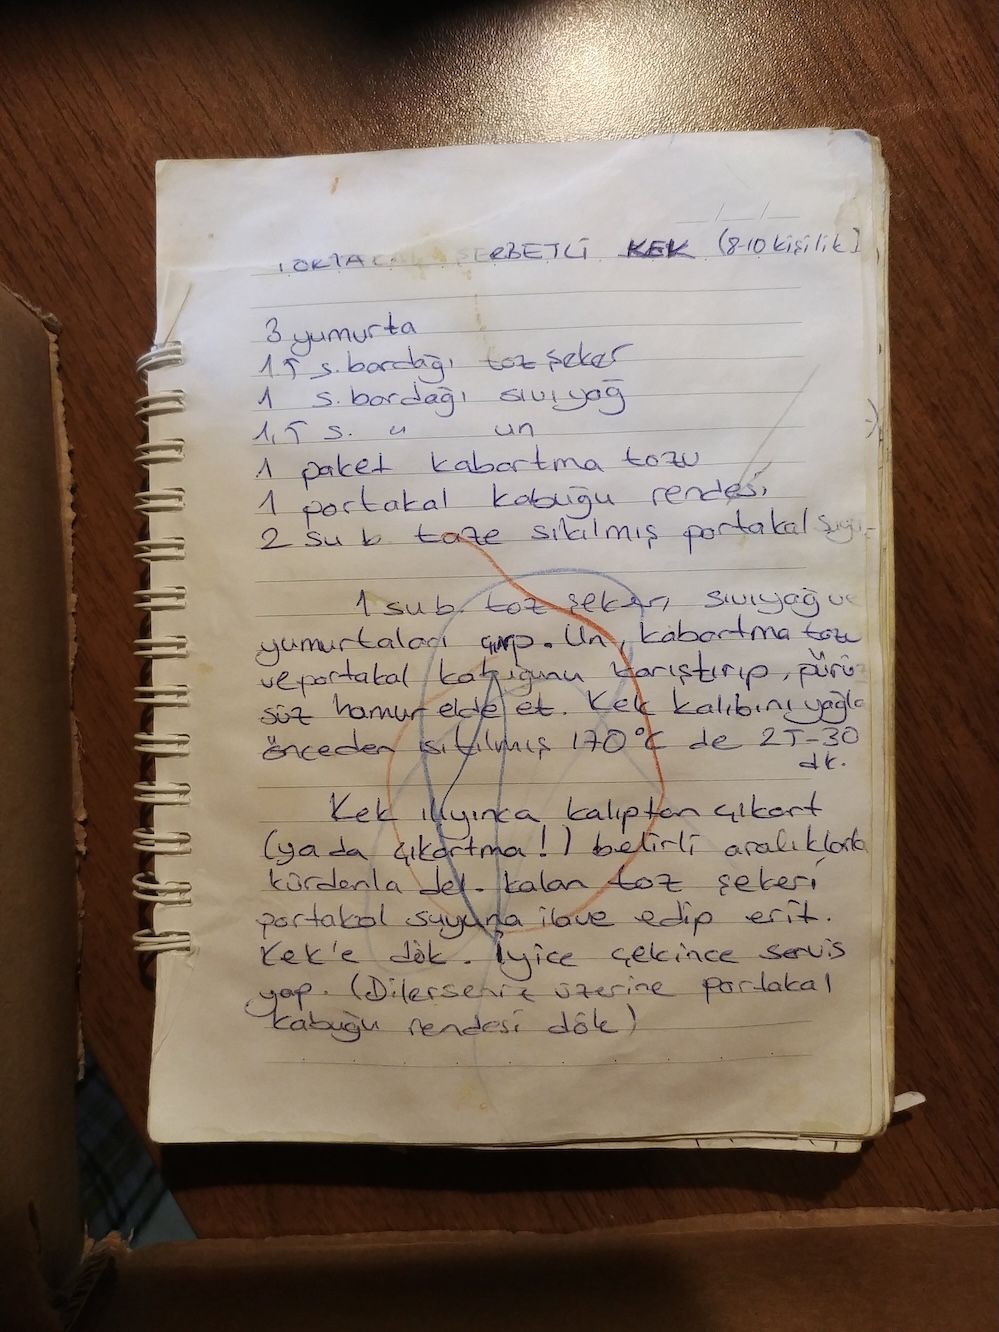 PORTAKAL ŞERBETLİ KEK (8-10 kişilik)
3 yumurta
1,5 s. bardağı toz şeker
1 s. bardağı sıvıyağ
1,5 s. " un
1 paket kabartma tozu
1 portakal kabuğu rendesi
2 su b. taze sıkılmış portakal suyu
1 su b. toz şekeri, sıvıyağ ve
yumurtaları çırp. Un, kabartma tozu
ve portakal kabuğunu karıştırıp, pürü-
süz hamur elde et. Kek kalıbını yağla
önceden ısıtılmış 170°C de 25-30
dk.
Kek ılıyınca kalıptan çıkart
(ya da çıkartma!) belirli aralıklarla
kürdanla del. Kalan toz şekeri
portakal suyuna ilave edip erit.
Kek'e dök. İyice çekince servis
yap. (Dilerseniz üzerine portakal
kabuğu rendesi dök)